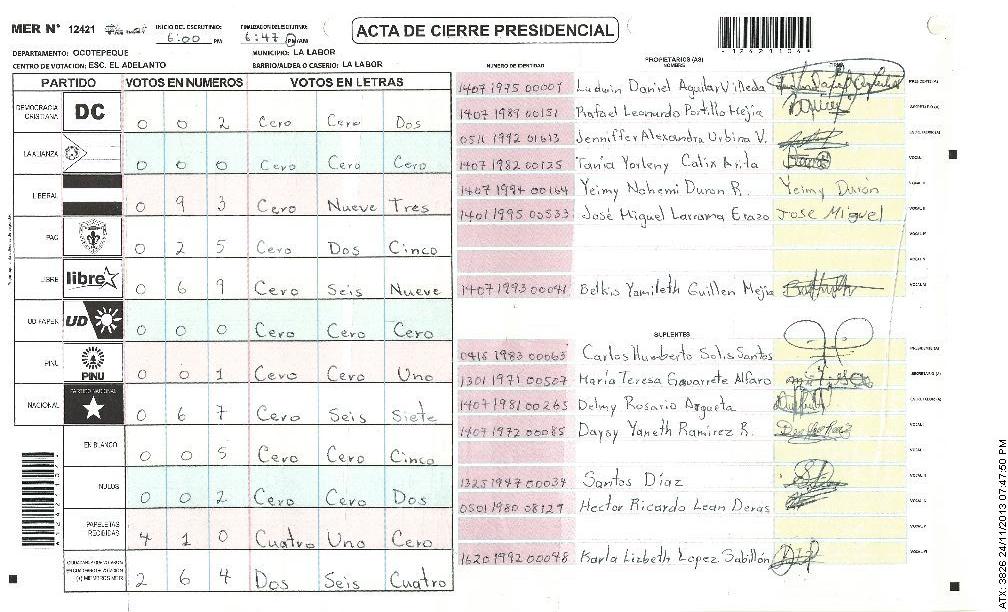 MER N° 12421
INICIO DEL ESCRUTINIO: 6:00 PM
FINALIZACION DEL ESCRUTINIO: 6:47 PM/AM
ACTA DE CIERRE PRESIDENCIAL
DEPARTAMENTO: OCOTEPEQUE
MUNICIPIO: LA LABOR
CENTRO DE VOTACION: ESC. EL ADELANTO
BARRIO/ALDEA O CASERIO: LA LABOR
PARTIDO VOTOS EN NUMEROS VOTOS EN LETRAS
DEMOCRACIA CRISTIANA DC 0 0 2 Cero Cero Dos
LA ALIANZA 0 0 0 Cero Cero Cero
LIBERAL 0 9 3 Cero Nueve Tres
PAC 0 2 5 Cero Dos Cinco
LIBRE libre 0 6 9 Cero Seis Nueve
UD FAPER UD 0 0 0 Cero Cero Cero
PINU PINU 0 0 1 Cero Cero Uno
NACIONAL PARTIDO NACIONAL 0 6 7 Cero Seis Siete
EN BLANCO 0 0 5 Cero Cero Cinco
NULOS 0 0 2 Cero Cero Dos
PAPELETAS RECIBIDAS 4 1 0 Cuatro Uno Cero
MIEMBROS MER 2 6 4 Dos Seis Cuatro
PROPIETARIOS (AS)
NUMERO DE IDENTIDAD NOMBRE FIRMA
1407 1975 00007 Ludwin Daniel Aguilar Villeda PRESIDENTE (A)
1407 1989 00151 Rafael Leonardo Portillo Mejía SECRETARIO (A)
0511 1992 01613 Jenniffer Alexandra Urbina V. ESCRUTADOR (A)
1407 1982 00125 Tania Yorleny Calix Arita VOCAL I
1407 1994 00164 Yeimy Nohemi Duron R. Yeimy Durón
1401 1995 00533 José Miguel Larrama Erazo Jose Miguel
1407 1993 00041 Belkis Yamileth Guillen Mejia
SUPLENTES
0415 1983 00063 Carlos Humberto Solis Santos PRESIDENTE (A)
1301 1971 00507 María Teresa Gavarrete Alfaro SECRETARIO (A)
1407 1981 00265 Delmy Rosario Argueta ESCRUTADOR (A)
1407 1972 00085 Daysy Yaneth Ramirez R. VOCAL I
1325 1947 00034 Santos Díaz
0501 1980 08127 Hector Ricardo Lean Deras
1620 1992 00048 Karla Lizbeth Lopez Sabillón
ATX 3826 24/11/2013 07:47:50 PM